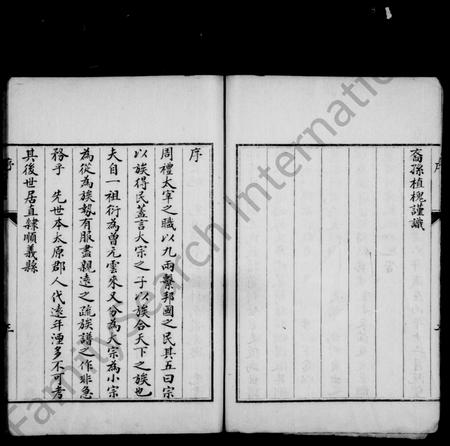 裔孫植槐謹識
序
周禮太宰之職以九兩繫邦國之民其五曰宗
以族得民蓋言大宗之子以族合天下之族也
夫自一祖衍為曾元雲來又分為大宗為小宗
為從為族㚾有服盡親遠之疏族譜之作非急
務乎 先世本太原郡人代遠年湮多不可考
其後世居直隸順義縣
序
三
FamilySearch International